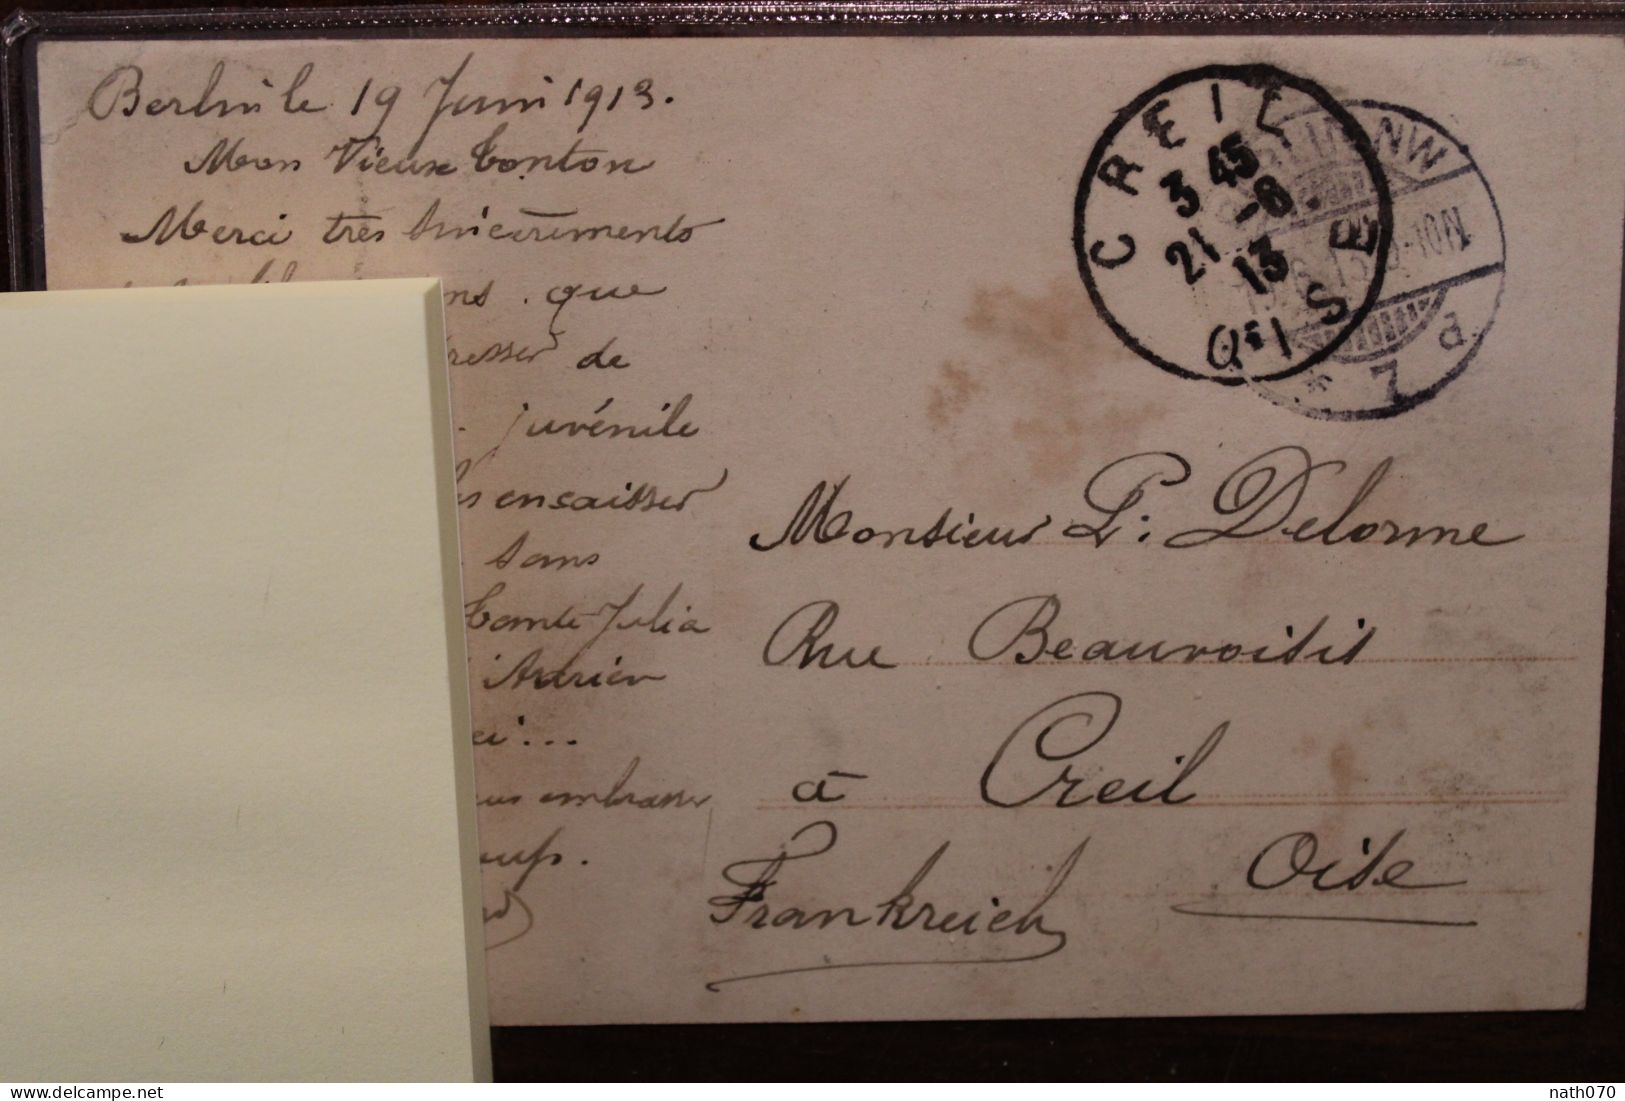 Berlin le 19 Juin 1913.
Mon Vieux Tonton
Merci très sincèrements
ns . que
resser de
juvénile
es encaisser
sans
Tante Julia
Adrien
ci...
ous embrasser
oup.
CREIL
3 45
21 -6
13
OISE
BERLIN NW
Monsieur P. Delorme
Rue Beauvoisis
à Creil
Oise
Frankreich
nath070